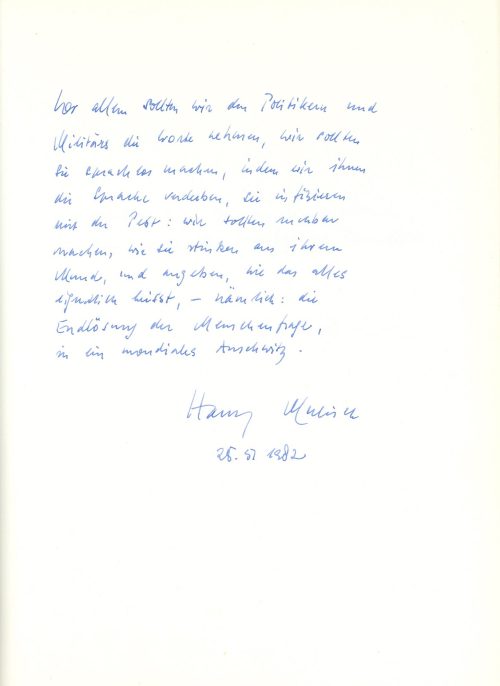 Vor allem sollten wir den Politikern und
Militärs die Worte nehmen, wir sollten
sie sprachlos machen, indem wir ihnen
die Sprache verderben, sie infizieren
mit der Pest: wir sollten
machen, wie sie stinken aus ihrem
Mund, und angeben, wie das alles
eigentlich heisst, – nämlich: die
Endlösung der Menschenfrage,
in ein mondiales Auschwitz.
Harry Mulisch
1982